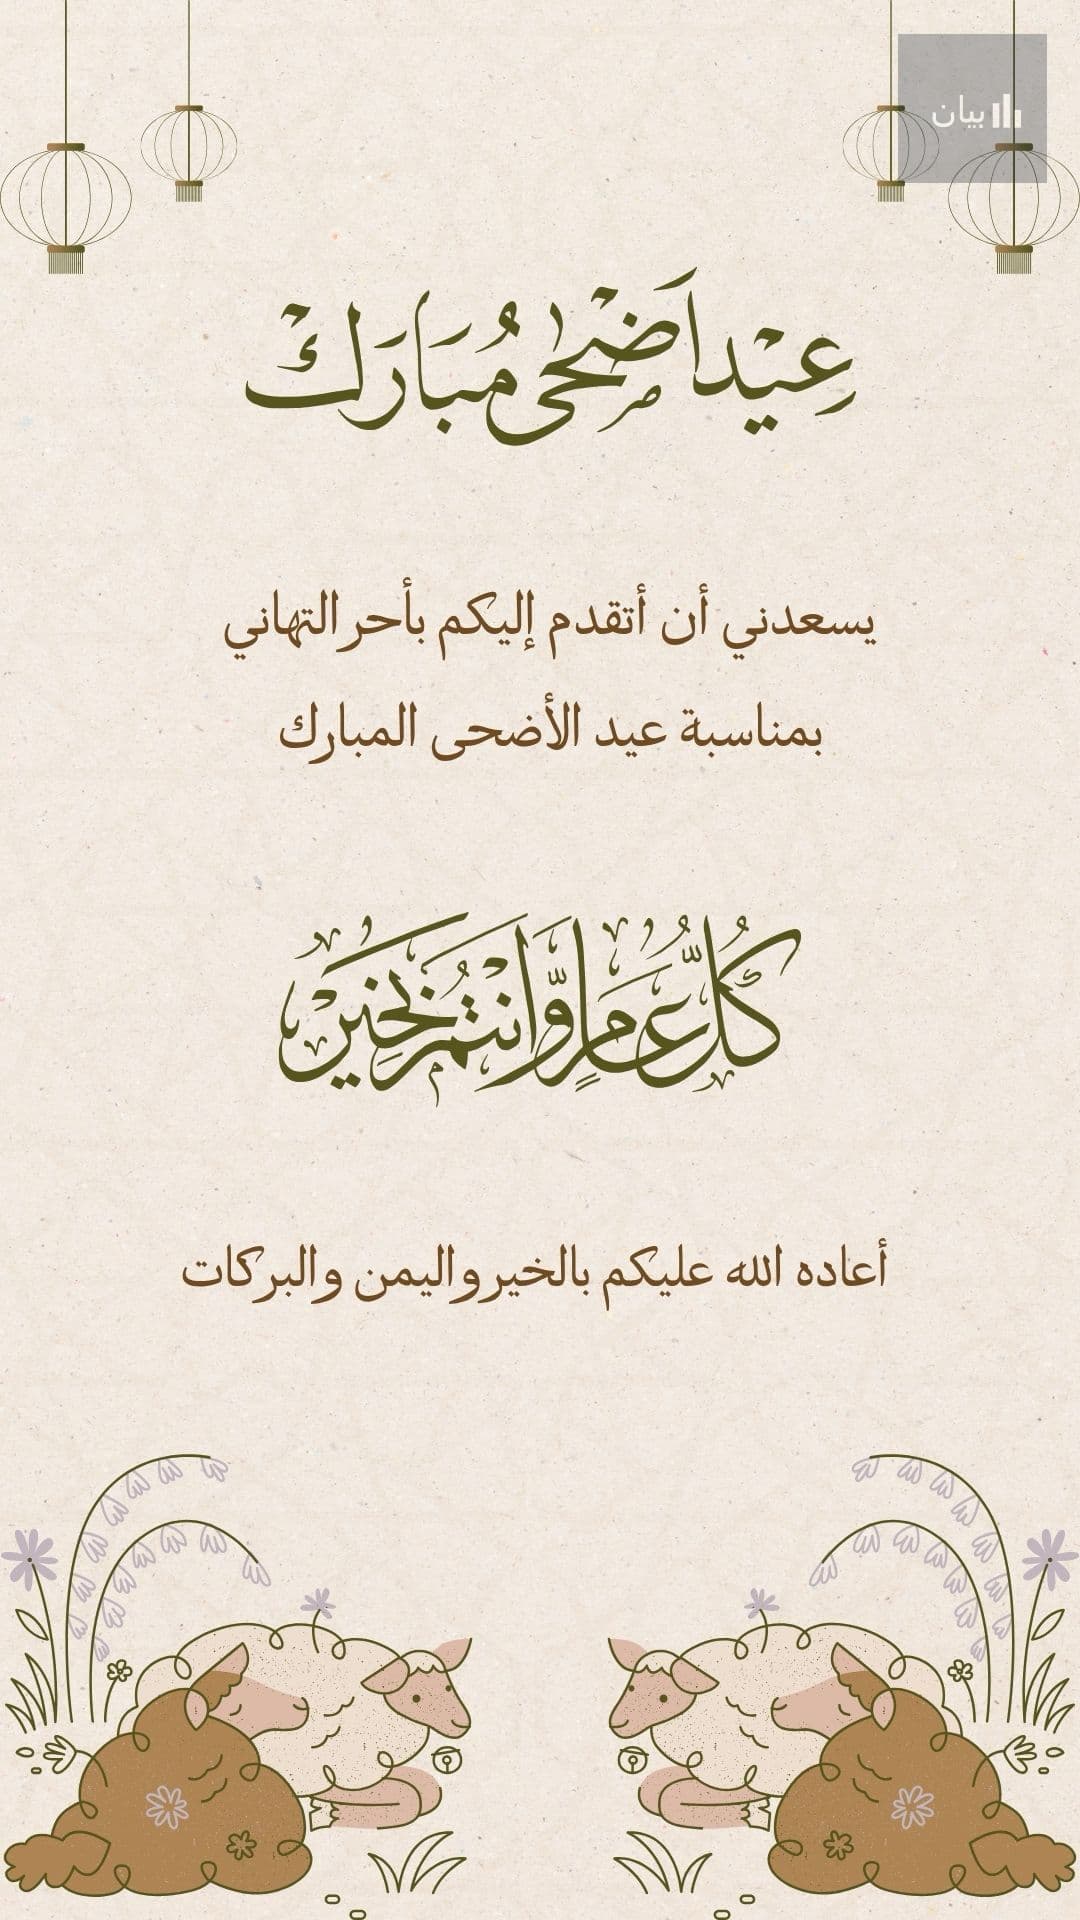 بيان
عِيْد اَضْحٰى مُبَارَكْ
يسعدني أن أتقدم إليكم بأحر التهاني
بمناسبة عيد الأضحى المبارك
كُلُّ عَامٍ وَّاَنْتُمْ بِخَيْرْ
أعاده الله عليكم بالخير واليمن والبركات